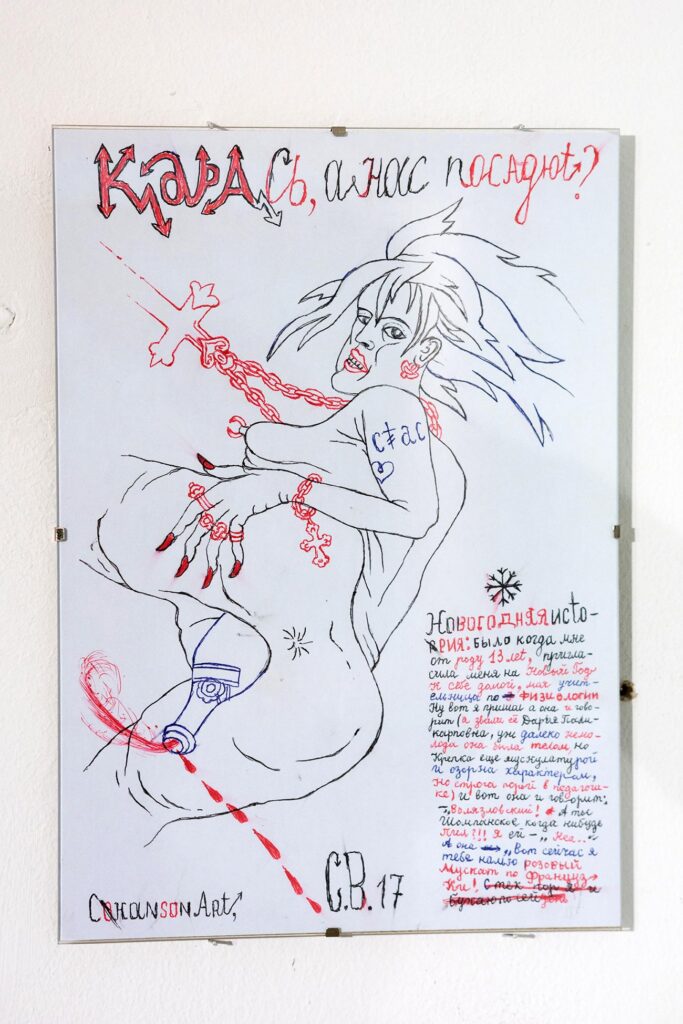 КАРАСЬ, а нас посадют?
стас
Новогодняя исто-
рия: было когда мне
от роду 13 лет, пригла-
сила меня на Новый Год
к себе домой, мих учит-
ельница по физиологии
Ну вот я пришол а она и гово-
рит (а звали её Дарья Поли-
карповна, уж далеко немо-
лода она была телом но
крепка ещё мускулатурой
и озорна характером,
но строга порой в педагоги-
ке) и вот она и говорит:
-„Волязловский! А ты
Шомпанское когда нибудь
пил?!! Я ей -„Неа.."
А она „вот сейчас я
тебе налью розовый
Мускат по Француз
Ки! С тех пор я и
бухаю по сей день
C.B.17